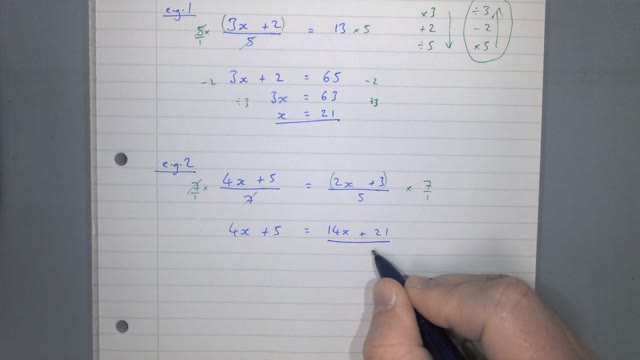 e.g.1
5/1 × (3x + 2)/5 = 13 × 5
×3 ÷3
+2 −2
÷5 ×5
−2 3x + 2 = 65 −2
÷3 3x = 63 ÷3
x = 21
e.g.2
7/1 × 4x + 5/7 = (2x + 3)/5 × 7/1
4x + 5 = 14x + 21